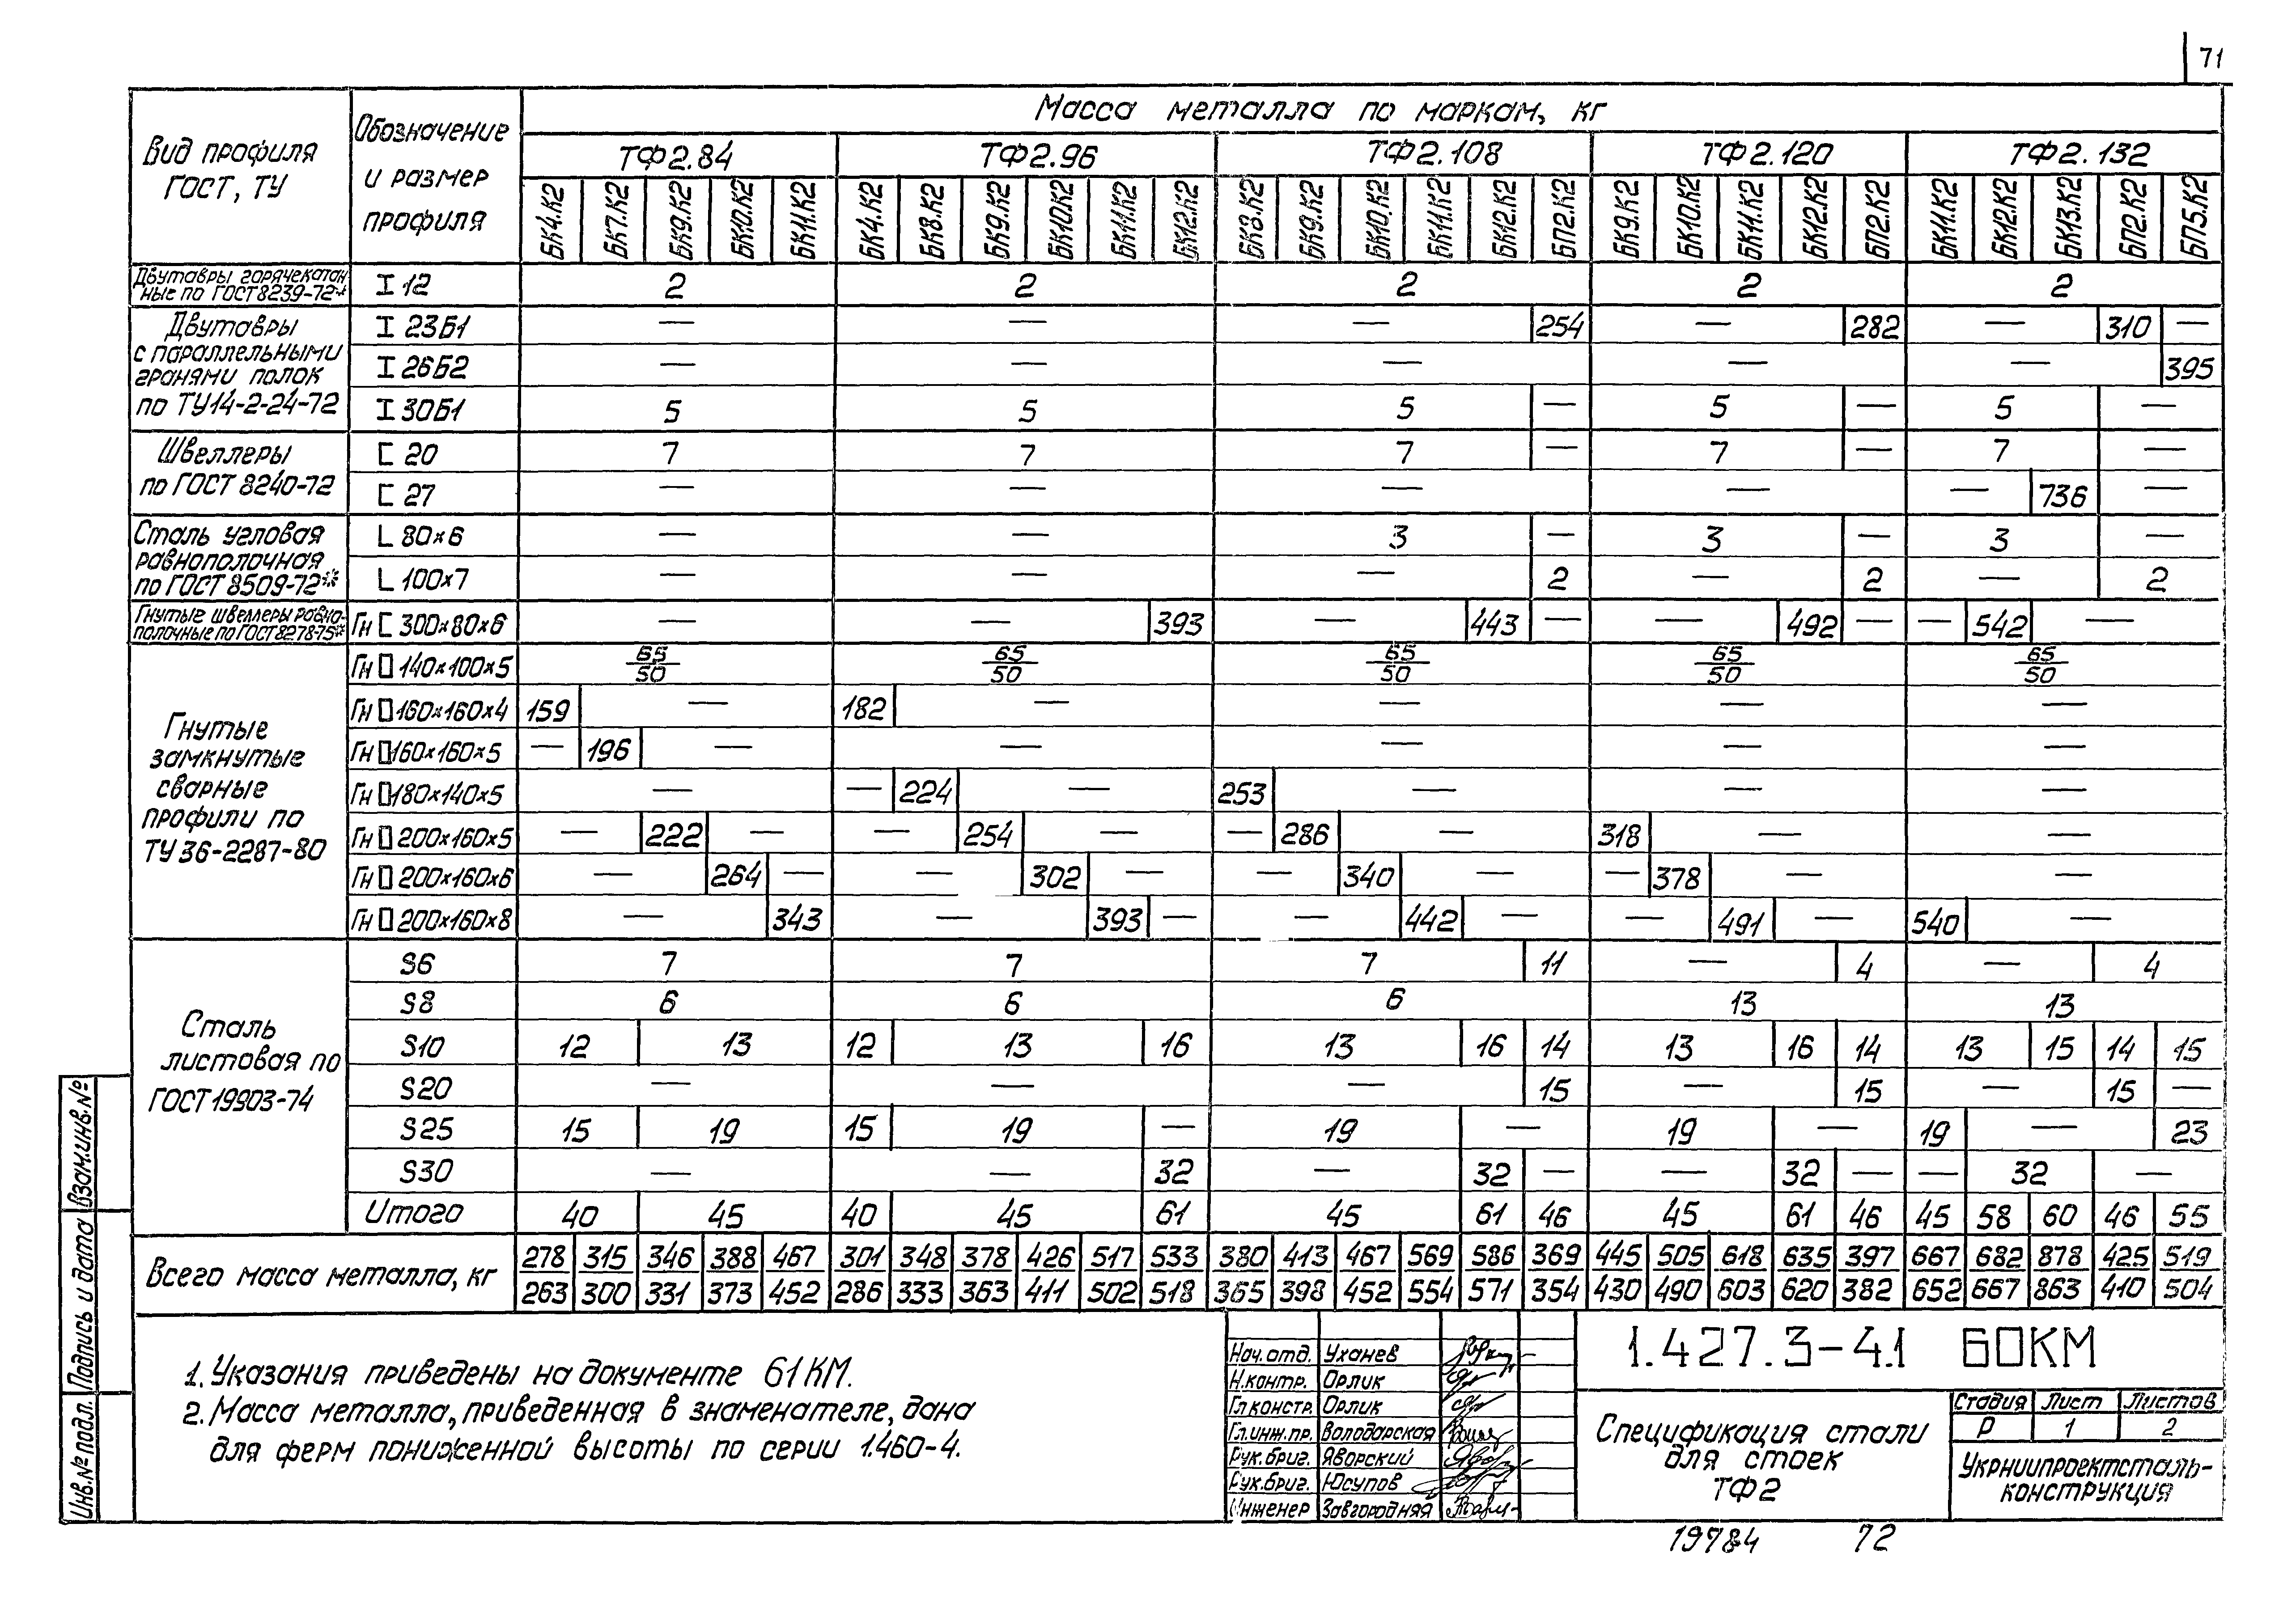 71
Вид профиля ГОСТ, ТУ
Обозначение и размер профиля
Масса металла по маркам, кг
ТФ2.84 ТФ2.96 ТФ2.108 ТФ2.120 ТФ2.132
БК4.К2 БК7.К2 БК9.К2 БК10.К2 БК11.К2 БК4.К2 БК8.К2 БК9.К2 БК10.К2 БК11.К2 БК12.К2 БК8.К2 БК9.К2 БК10.К2 БК11.К2 БК12.К2 БП2.К2 БК9.К2 БК10.К2 БК11.К2 БК12.К2 БП2.К2 БК11.К2 БК12.К2 БК13.К2 БП2.К2 БП5.К2
Двутавры горячекатан
ные по ГОСТ 8239-72*
I 12 2 2 2 2 2
Двутавры
с параллельными
гранями полок
по ТУ14-2-24-72
I 23Б1 — — — 254 — 282 — 310 —
I 26Б2 — — — — — 395
I 30Б1 5 5 5 — 5 — 5 —
Швеллеры
по ГОСТ 8240-72
[ 20 7 7 7 — 7 — 7 —
[ 27 — — — — — 736 —
Сталь угловая
равнополочная
по ГОСТ 8509-72*
L 80×6 — — 3 — 3 — 3 —
L 100×7 — — — 2 — 2 — 2
Гнутые швеллеры равно-
полочные по ГОСТ 8278-75*
Гн [ 300×80×6 — — 393 — 443 — — 492 — — 542 —
Гнутые
замкнутые
сварные
профили по
ТУ 36-2287-80
Гн □ 140×100×5 65/50 65/50 65/50 65/50 65/50
Гн □ 160×160×4 159 — 182 — — — —
Гн □ 160×160×5 — 196 — — — — —
Гн □ 180×140×5 — — 224 — 253 — — —
Гн □ 200×160×5 — 222 — — 254 — — 286 — 318 — —
Гн □ 200×160×6 — 264 — — 302 — — 340 — — 378 — —
Гн □ 200×160×8 — 343 — 393 — — 442 — — 491 — 540 —
Сталь
листовая по
ГОСТ 19903-74
S6 7 7 7 11 — 4 — 4
S8 6 6 6 13 13
S10 12 13 12 13 16 13 16 14 13 16 14 13 15 14 15
S20 — — — 15 — 15 — 15 —
S25 15 19 15 19 — 19 — 19 — 19 — 23
S30 — — 32 — 32 — — 32 — — 32 —
Итого 40 45 40 45 61 45 61 46 45 61 46 45 58 60 46 55
Всего масса металла, кг
278 315 346 388 467 301 348 378 426 517 533 380 413 467 569 586 369 445 505 618 635 397 667 682 878 425 519
263 300 331 373 452 286 333 363 411 502 518 365 398 452 554 571 354 430 490 603 620 382 652 667 863 410 504
1. Указания приведены на документе 61КМ.
2. Масса металла, приведенная в знаменателе, дана
для ферм пониженной высоты по серии 1.460-4.
Нач.отд. Уханев
Н.контр. Орлик
Гл.констр. Орлик
Гл.инж.пр. Володарская
Рук.бриг. Яворский
Рук.бриг. Юсупов
Инженер Завгородняя
1.427.3-4.1 60КМ
Спецификация стали
для стоек
ТФ2
Стадия Лист Листов
Р 1 2
Укрниипроектсталь-
конструкция
Взам.инв.№
Подпись и дата
Инв.№ подл.
19784 72